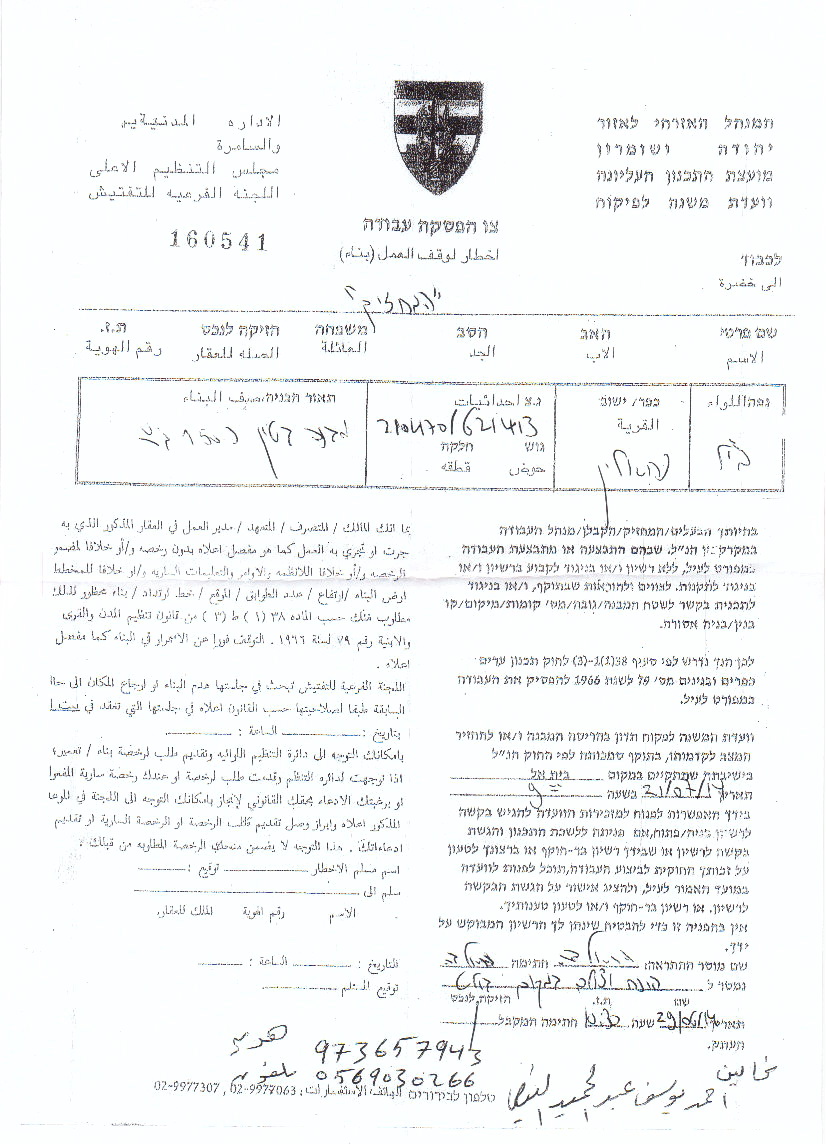 המנהל האזרחי לאזור
יהודה ושומרון
מועצת התכנון העליונה
וועדת משנה לפיקוח
الاداره المدنية
والسامرة
مجلس التنظيم الاعلى
اللجنه الفرعيه للتفتيش
160541
צו הפסיקה עבודה
اخطار لوقف العمل (بناء)
לכבוד
الى حضرة
"המחזיק"
שם פרטי האב הסב משפחה הזיקה לנכס ת.ז.
الاسم الاب الجد العائلة الصله للعقار رقم الهوية
נפה/اللواء כפר/ישוב القرية נ.צ احداثيات תאור הבניה/وصف البناء
210470/621413
גוש חלקה
حوض قطعه
בהיותך הבעלים/המחזיק/הקבלן/מנהל העבודה
במקרקעין הנ"ל, שבהם התבצעה או מתבצעת העבודה
כמפורט לעיל, ללא רשיון ו/או בניגוד לקבוע ברשיון ו/או
בניגוד לתקנות, לצווים ולהוראות שבתוקף, ו/או בניגוד
לתכנית בקשר לשטח המבנה/גובה/מס' קומות/מיקום/קו
בנין/בניה אסורה.
לכן הנך נדרש לפי סעיף 38(1)-(3) לחוק תכנון ערים
הכפרים ובנינים מס' 79 לשנת 1966 להפסיק את העבודה
כמפורט לעיל.
וועדת המשנה לפיקוח תדון בהריסת המבנה ו/או להחזיר
המצב לקדמותו, בתוקף סמכותה לפי החוק הנ"ל
בישיבתה שתתקיים במקום בית אל
תאריך 21/07/14 בשעה 9
בידך האפשרות לפנות למזכירות הוועדה להגיש בקשה
לרשיון בניה/פתוח, אם פנייתה ללשכת התכנון והגשת
בקשה לרשיון או שבידך רשיון בר-תוקף או ברצונך לטעון
על זכותך החוקית לביצוע העבודה, תוכל לפנות לוועדה
במועד האמור לעיל, ולהציג אישור על הגשת הבקשה
לרשיון, או רשיון בר-תוקף ו/או לטעון טענותיך.
אין בהפניה זו כדי להבטיח שינתן לך הרשיון המבוקש על
ידך.
שם מוסר ההתראה: חתימה
נמסר ל
שם: ת.ז. הזיקה לנכס
תאריך 29/06/14 שעה 10:30 חתימת המקבל
העתק.
بما انك المالك / المتصرف / المتعهد / مدير العمل في العقار المذكور الذي به
جرت او تجري به العمل كما هو مفصل اعلاه بدون رخصه و/أو خلافا لمضمون
الرخصه و/أو خلافا للانظمه والاوامر والتعليمات الساريه و/او خلافا للمخطط
ارض البناء /ارتفاع / عدد الطوابق / الموقع / خط ارتداد / بناء محظور لذلك
مطلوب منك حسب الماده ٣٨ (١) ط (٣) من قانون تنظيم المدن والقرى
والابنية رقم ٧٩ لسنة ١٩٦٦ . التوقف فورا عن الاستمرار في البناء كما مفصل
اعلاه .
اللجنة الفرعية للتفتيش تبحث في جلستها هدم البناء او ارجاع المكان الى حالته
السابقة طبقا لصلاحيتها حسب القانون اعلاه في جلستها التي تعقد في
بتاريخ : الساعة :
بامكانك التوجه الى دائرة التنظيم اللوائيه وتقديم طلب لرخصة بناء / تعمير،
اذا توجهت لدائره التنظم وقدمت طلب لرخصة او عندك رخصة سارية المفعول
او برغبتك الادعاء بحقك القانوني لإنجاز بامكانك التوجه الى اللجنة في الموعد
المذكور اعلاه وابراز وصل تقديم طلب الرخصة او الرخصة السارية او تقديم
ادعاءاتك . هذا التوجه لا يضمن منحك الرخصة المطلوبه من قبلك .
اسم مسلم الاخطار توقيع :
سلم الى
الاسم رقم الهوية المالك للعقار.
التاريخ : الساعة :
توقيع المستلم
هوية 973657943
تلفون 0569030266
טלפון לבירורים الهاتف للاستفسارات: 02-9977063 , 02-9977307
احمد يوسف عبد الحميد